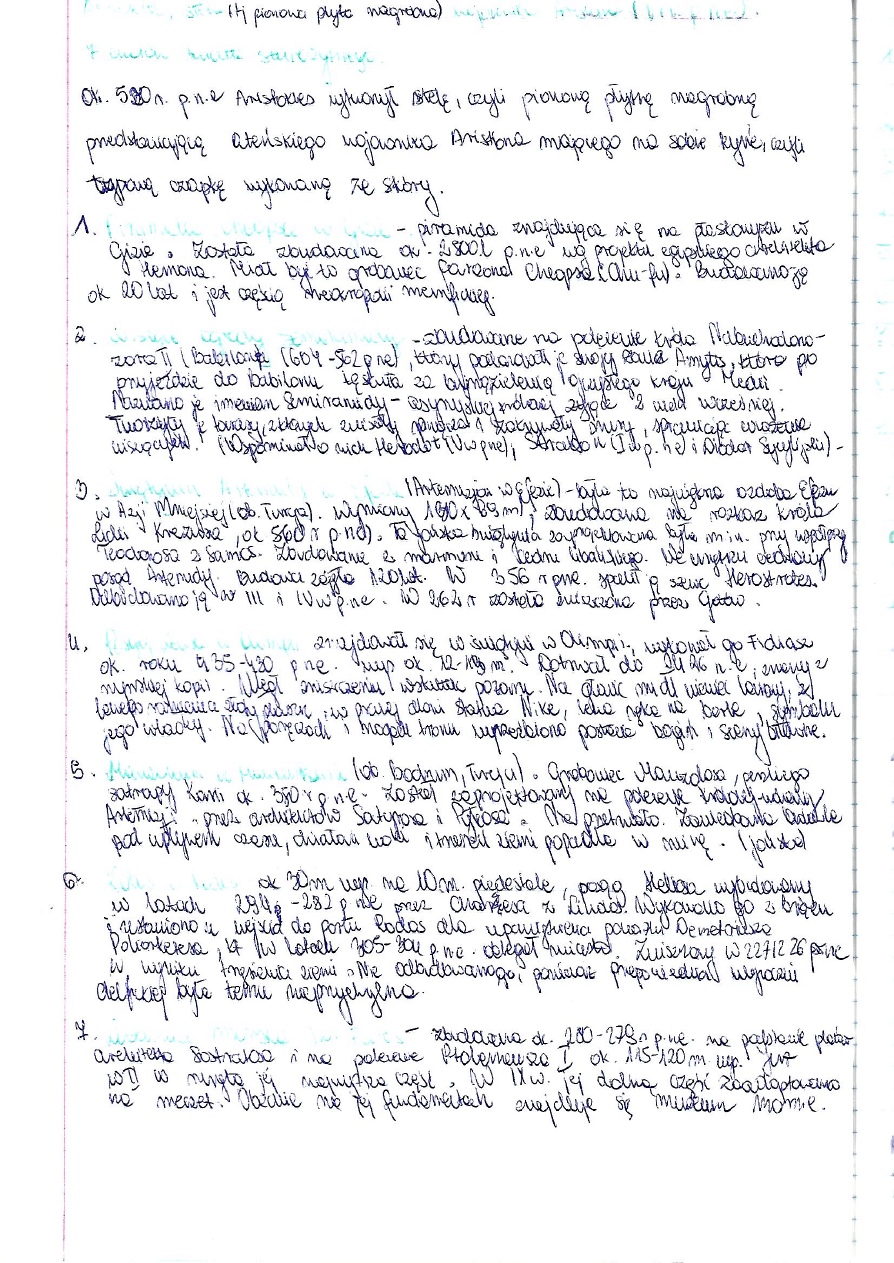 (tj pionowa płyta nagrobna)
7 cudów świata starożytnego.
Ok. 530r. p.n.e Aristokles wykonał stelę, czyli pionową płytkę nagrobną
przedstawiającą ateńskiego wojownika Aristona mającego na sobie kynê, czyli
czapkę wykonaną ze skóry.
1. Piramida Cheopsa w Gizie - piramida znajdująca się na płaskowyżu w
Gizie. Została zbudowana ok. 2800r p.n.e wg projektu egipskiego architekta
Hemona. Miał być to grobowiec faraona Cheopsa (Chu-fu). Budowano ją
ok 20 lat i jest częścią nekropolii memfickiej.
2. Wiszące ogrody Semiramidy - zbudowane na polecenie króla Nabuchodono-
zora II (Babilonia (604-562 p.n.e), który podarował je swojej żonie Amytis, która po
przyjeździe do Babilonu tęskniła za ojczystego kraju Medii.
Nazwano je imieniem Semiramidy - asyryjskiej królowej żyjącej 2 wieki wcześniej.
Tworzyły je tarasy, z których zwisały pnącza i krzewy, sprawiając wrażenie
wiszących. (Wspominał o nich Herodot (V w pne), Strabon (I w p.ne) i Diodor Sycylijski) -
3. Świątynia Artemidy w Efezie (Artemizjon w Efezie) - była to największa ozdoba Efezu
w Azji Mniejszej (ob. Turcja). wymiary zbudowana na rozkaz króla
Lidii Krezusa, ok 560 r p.ne). Ta jońska świątynia zaprojektowana była m.in. przy współpracy
Teodorosa z Samos. Zbudowanie z marmuru i cedru We wnętrzu cedrowy
posąg Artemidy. Budowa zajęła 120 lat. W 356 r pne. spalił ją szewc Herostrates.
Odbudowano ją w III i IV w p.ne. W 262 r została zniszczona przez Gotów.
4. znajdował się w świątyni w Olimpii, wykonał go Fidiasz
ok. roku 435-430 p.n.e. wys ok. 12- m. Dotrwał do 426 n.e, znany z
rzymskiej kopii. Uległ zniszczeniu wskutek pożaru. Na głowie miał wieniec laurowy, z
lewego ramienia płaszcz, w prawej dłoni statua Nike, lewa ręka na berle, symbolu
jego władzy. Na poręczach i nogach tronu wyrzeźbiono postacie bogiń i sceny bitewne.
5. Mauzoleum w Halikarnasie (ob. Bodrum, Turcja). Grobowiec Mauzolosa, perskiego
satrapy Karii ok. 350 r p.n.e. Został zaprojektowany na polecenie
Artemizji przez architektów Satyrosa i Pyteosa. Nie przetrwało.
pod wpływem czasu, działań wojen i trzęsień ziemi popadła w ruinę. (jońska)
6. ok 30m wys. na 10m. piedestale, posąg Heliosa wybudowany
w latach 294 -282 p.n.e przez Charesa z Lindos. Wykonano go z brązu
i ustawiono u wejścia do portu Rodos dla upamiętnienia porażki Demetriusza
Poliorketesa, w latach 305-304 p.n.e. oblegał miasto. Zniszczony w 227/226 p.n.e
w wyniku trzęsienia ziemi. Nie odbudowano go, ponieważ przepowiednia wyroczni
delfickiej była temu nieprzychylna.
7. - zbudowana ok. 280-279 r p.n.e. na podstawie planów
architekta Sostratosa i na polecenie Ptolemeusza I ok. 115-120 m wys.
jej największa część. W IX w. jej dolną część zaadaptowano
na meczet. Obecnie na jej fundamentach znajduje się muzeum morskie.